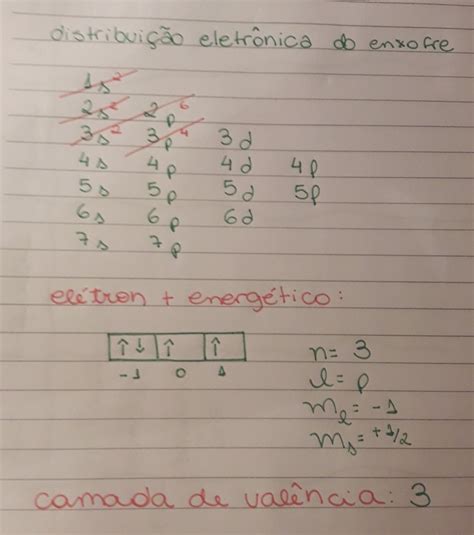 distribuição eletrônica do enxofre
1s²
2s² 2p⁶
3s² 3p⁴ 3d
4s 4p 4d 4p
5s 5p 5d 5p
6s 6p 6d
7s 7p
elétron + energético:
↑↓ ↑ ↑
-1 0 1
n= 3
l= p
mₗ= -1
mₛ= +1/2
camada de valência: 3